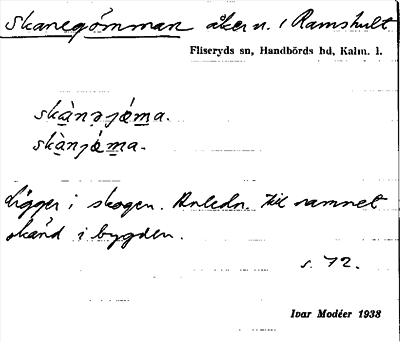 Skanegömman åker n. i Ramshult
Fliseryds sn, Handbörds hd, Kalm. l.
skà̱nə̣jǿma.
skà̱njǿma.
ligger i skogen. Anledn. till namnet
okänd i bygden.
s. 72.
Ivar Modéer 1938